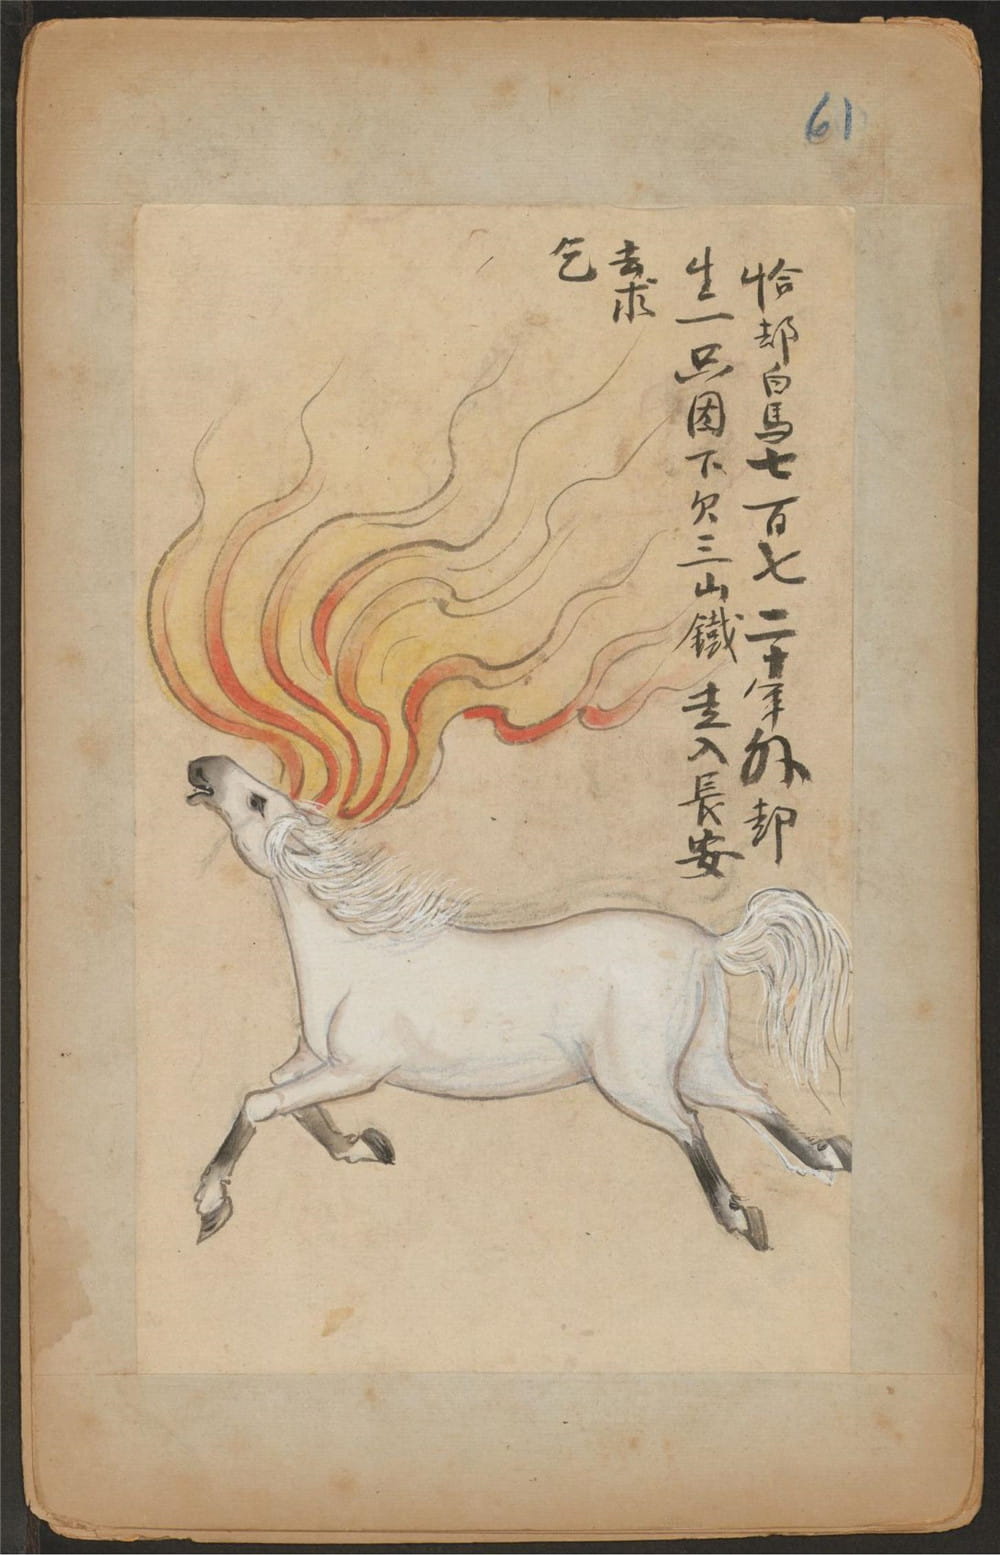 61
恰却白馬七百七 二十年外却
生一只因下欠三山鐵 走入長安
去求
乞